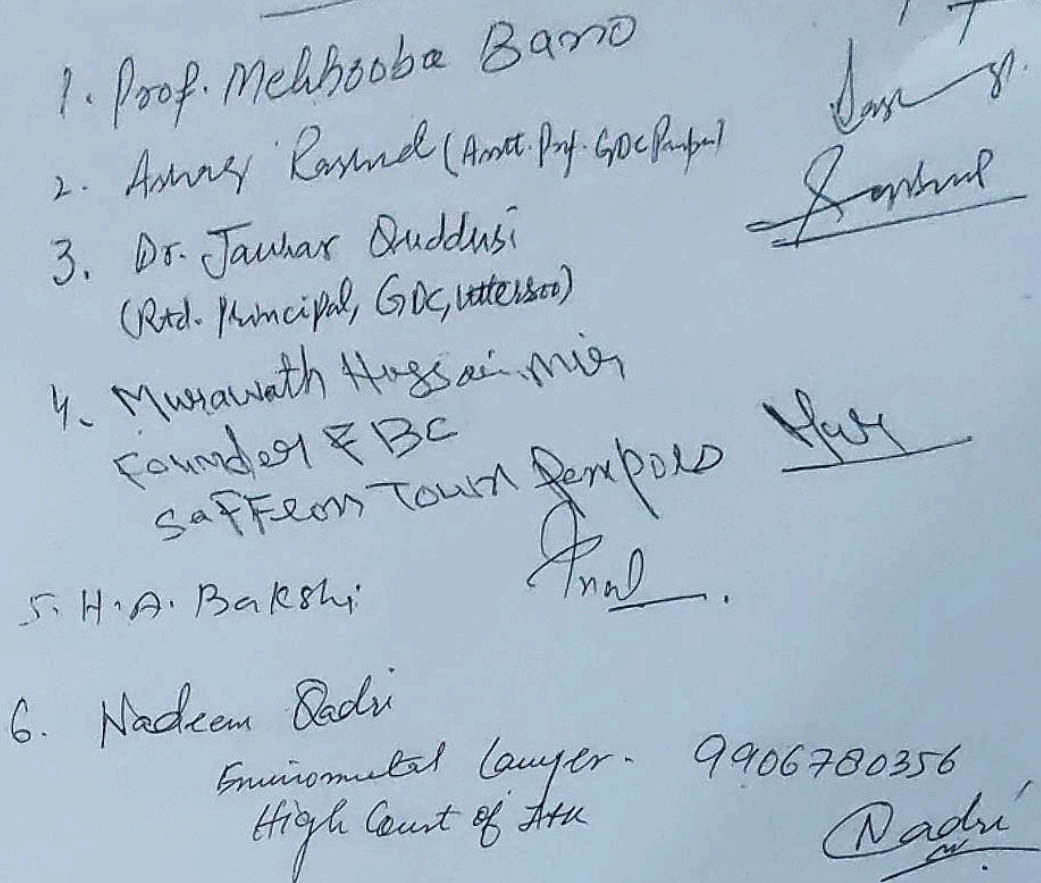 1. Prof. Mehbooba Bano
2. Rashid (Asstt. Prof. GDC
3. Dr. Jauhar Quddusi
(Rtd. Principal, GDC, Uttersoo)
4. Murawath Hussain Mir
Founder FBC
Saffron Town Pampore
5. H.A. Bakshi
6. Nadeem Qadri
Environmental Lawyer. 9906780356
High Court of J&K